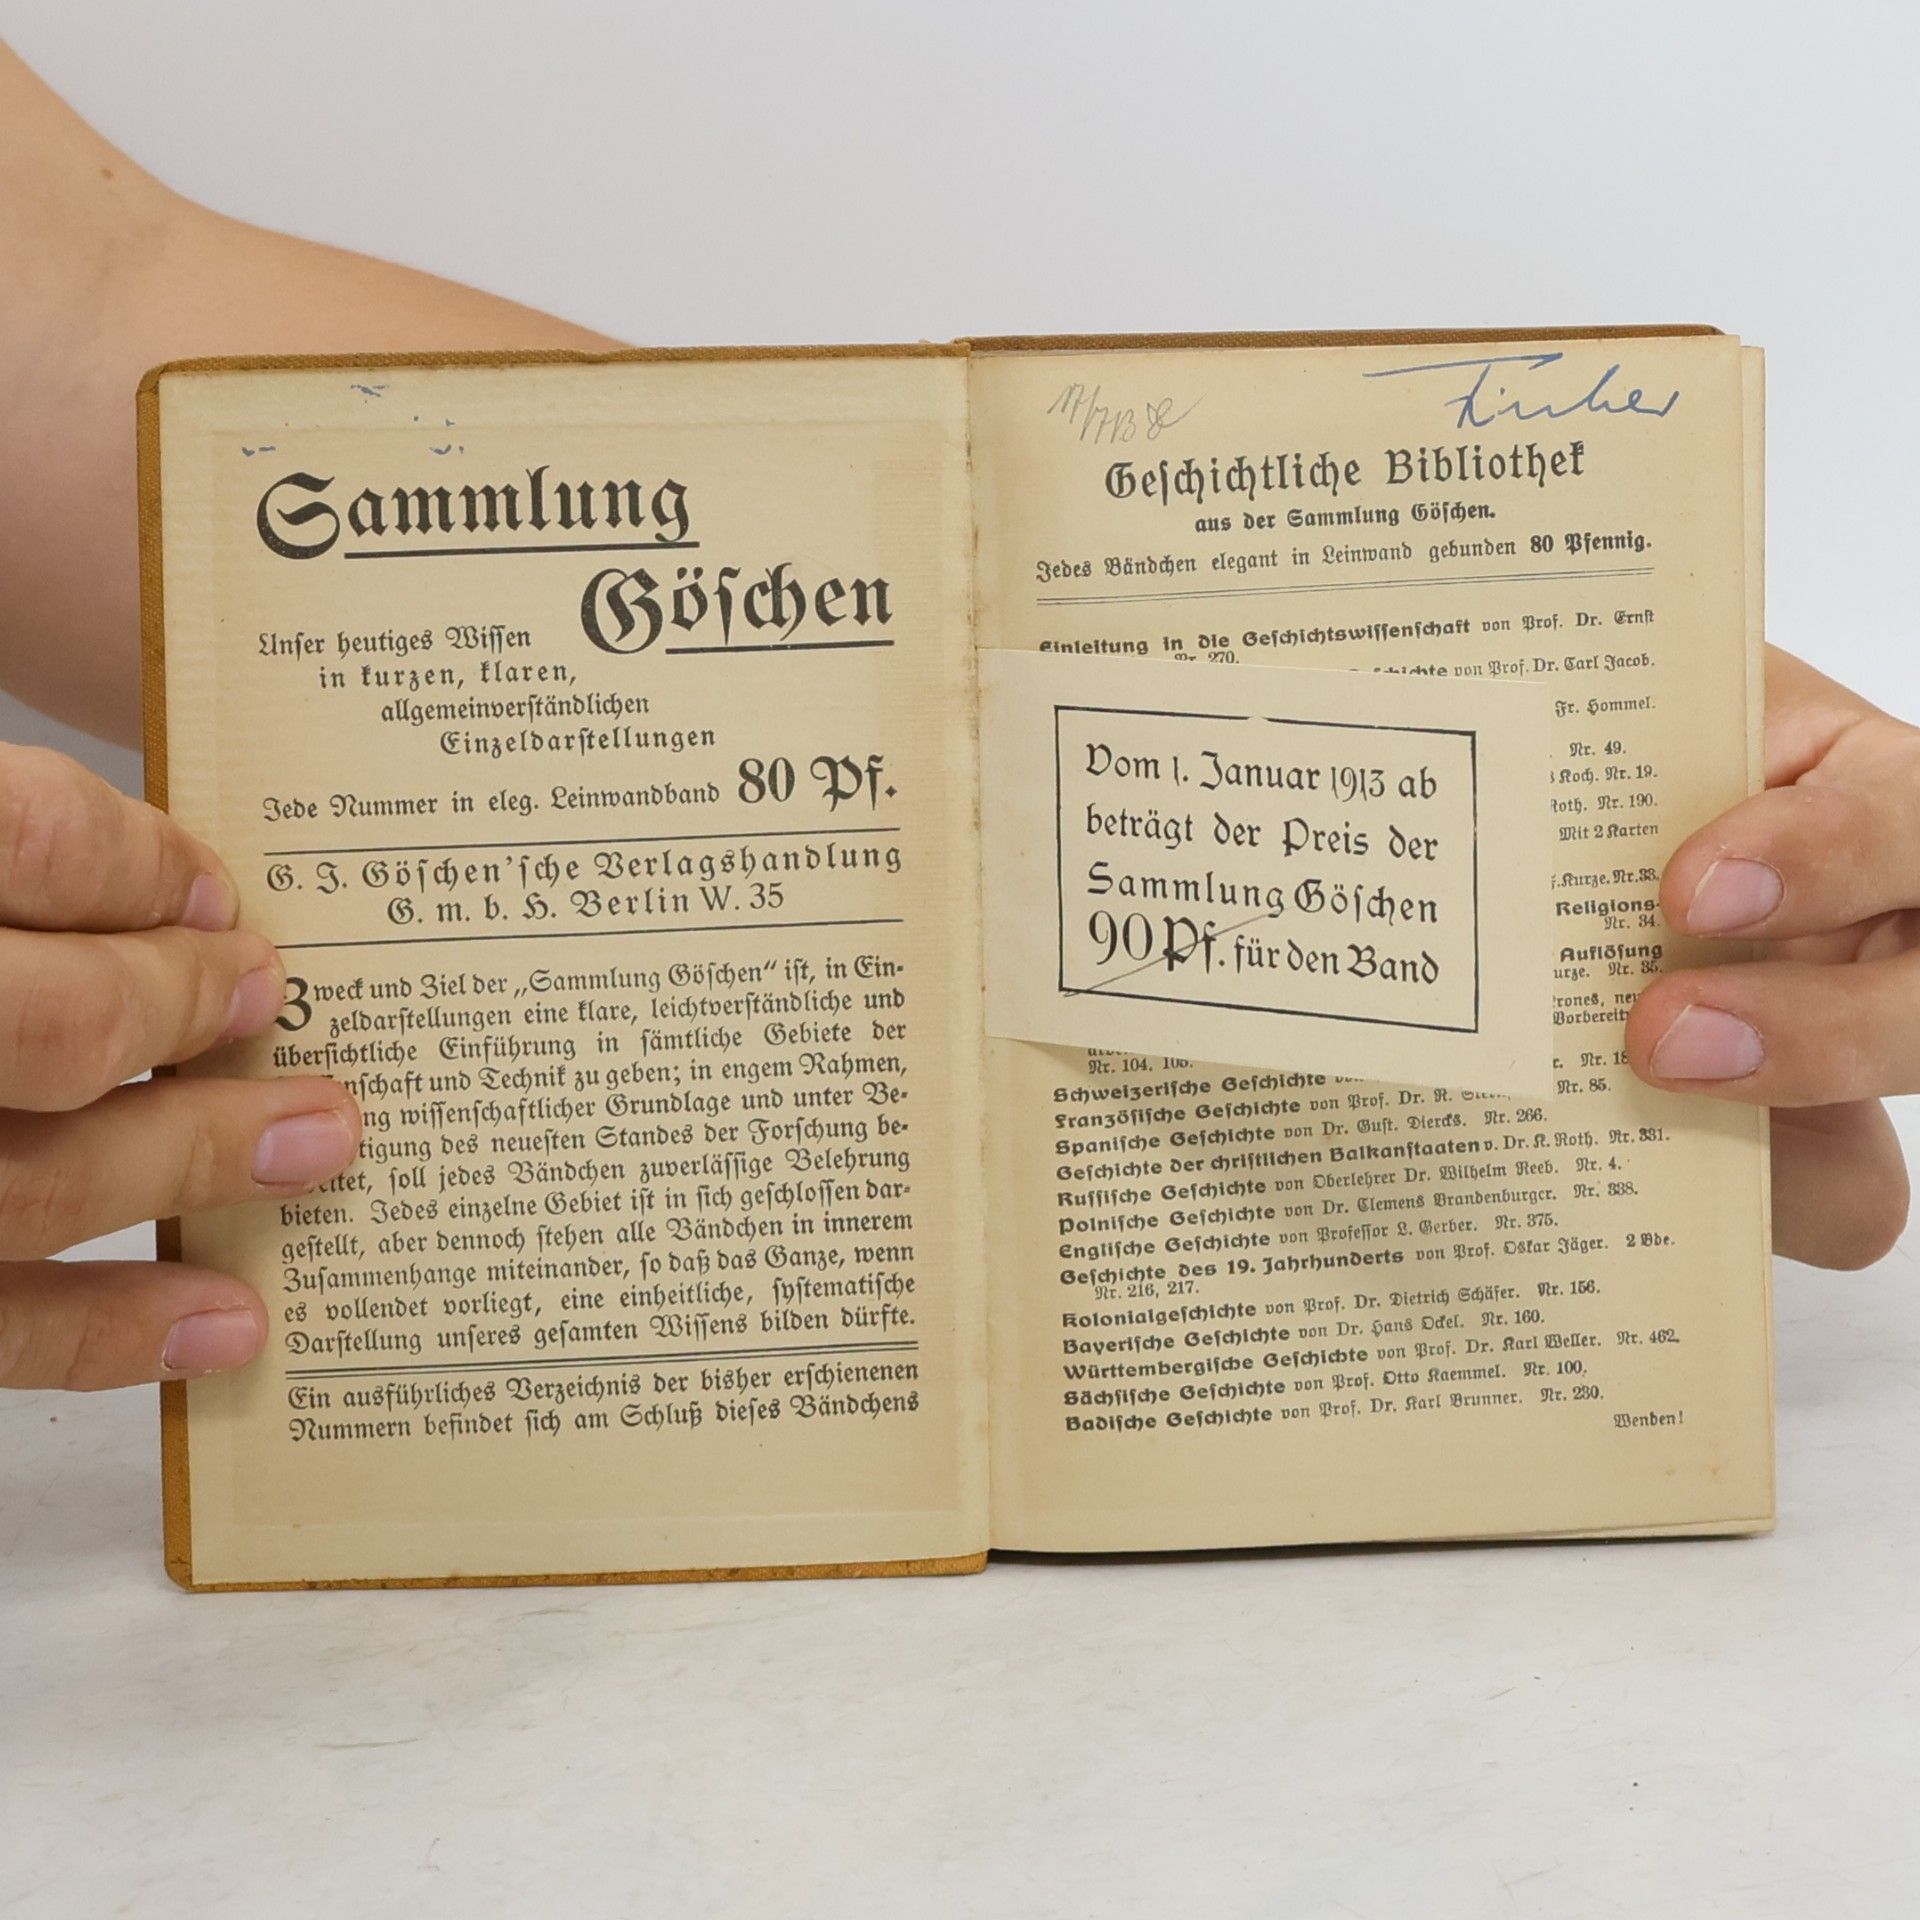 Sammlung
Göschen
Unser heutiges Wissen
in kurzen, klaren,
allgemeinverständlichen
Einzeldarstellungen
Jede Nummer in eleg. Leinwandband 80 Pf.
G. J. Göschen'sche Verlagshandlung
G. m. b. H. Berlin W. 35
Zweck und Ziel der „Sammlung Göschen“ ist, in Ein-
zeldarstellungen eine klare, leichtverständliche und
übersichtliche Einführung in sämtliche Gebiete der
nschaft und Technik zu geben; in engem Rahmen,
ng wissenschaftlicher Grundlage und unter Be-
tigung des neuesten Standes der Forschung be-
itet, soll jedes Bändchen zuverlässige Belehrung
bieten. Jedes einzelne Gebiet ist in sich geschlossen dar-
gestellt, aber dennoch stehen alle Bändchen in innerem
Zusammenhange miteinander, so daß das Ganze, wenn
es vollendet vorliegt, eine einheitliche, systematische
Darstellung unseres gesamten Wissens bilden dürfte.
Ein ausführliches Verzeichnis der bisher erschienenen
Nummern befindet sich am Schluß dieses Bändchens
Geschichtliche Bibliothek
aus der Sammlung Göschen.
Jedes Bändchen elegant in Leinwand gebunden 80 Pfennig.
Einleitung in die Geschichtswissenschaft von Prof. Dr. Ernst
Nr. 270.
schichte von Prof. Dr. Carl Jacob.
Fr. Hommel.
Nr. 49.
Koch. Nr. 19.
Roth. Nr. 190.
Mit 2 Karten
Kurze. Nr. 33.
Religions-
Nr. 34.
Auflösung
urze. Nr. 35.
Vom 1. Januar 1913 ab
beträgt der Preis der
Sammlung Göschen
90 Pf. für den Band
Nr. 104, 105.
Nr. 85.
Schweizerische Geschichte
Französische Geschichte von Prof. Dr. R.
Spanische Geschichte von Dr. Gust. Diercks. Nr. 266.
Geschichte der christlichen Balkanstaaten v. Dr. K. Roth. Nr. 331.
Russische Geschichte von Oberlehrer Dr. Wilhelm Reeb. Nr. 4.
Polnische Geschichte von Dr. Clemens Brandenburger. Nr. 338.
Englische Geschichte von Professor L. Gerber. Nr. 375.
Geschichte des 19. Jahrhunderts von Prof. Oskar Jäger. 2 Bde.
Nr. 216, 217.
Kolonialgeschichte von Prof. Dr. Dietrich Schäfer. Nr. 156.
Bayerische Geschichte von Dr. Hans Ockel. Nr. 160.
Württembergische Geschichte von Prof. Dr. Karl Weller. Nr. 462.
Sächsische Geschichte von Prof. Otto Kaemmel. Nr. 100.
Badische Geschichte von Prof. Dr. Karl Brunner. Nr. 230.
Wenden!